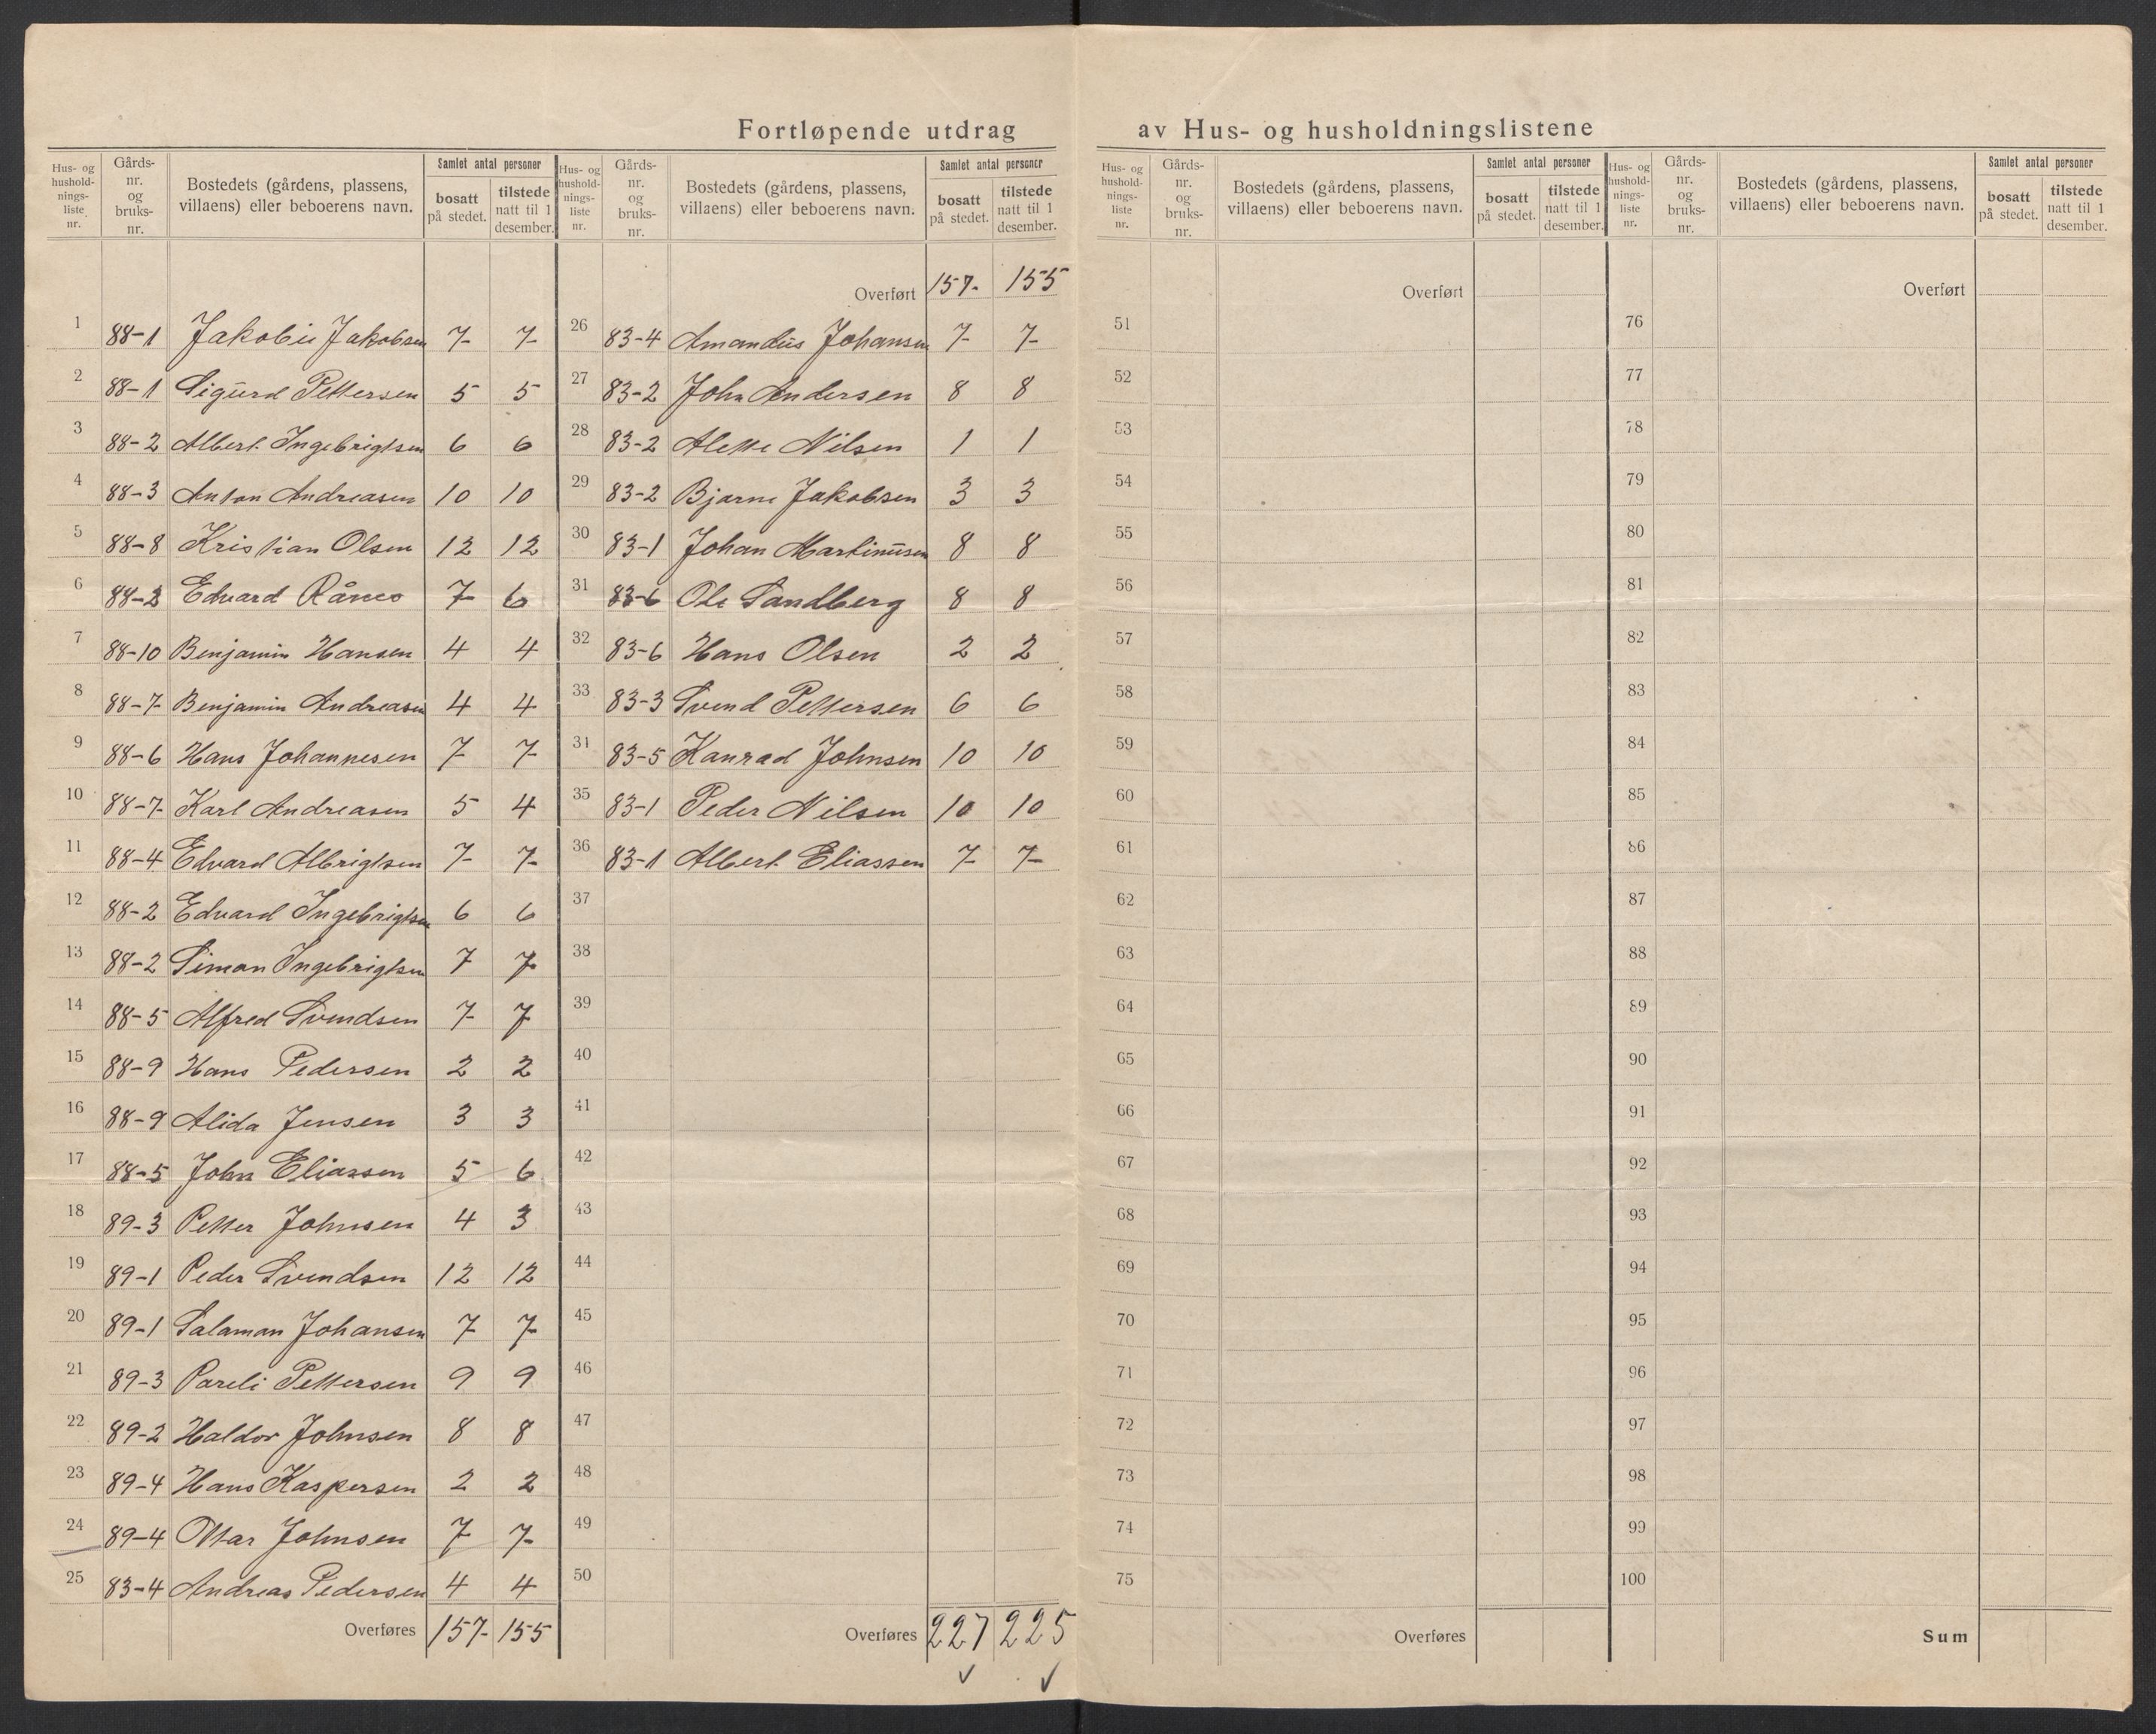 Fortløpende utdrag av Hus- og husholdningslistene
Hus- og hushold-nings-liste nr. Gårds-nr. og bruks-nr. Bostedets (gårdens, plassens, villaens) eller beboerens navn. Samlet antal personer bosatt på stedet. tilstede natt til 1 desember.
1 88-1 Jakobii Jakobsen 7 7
2 88-1 Sigurd Pettersen 5 5
3 88-2 Albert Ingebrigtsen 6 6
4 88-3 Anton Andreasen 10 10
5 88-8 Kristian Olsen 12 12
6 88-2 Edvard Rånes 7 6
7 88-10 Benjamin Hansen 4 4
8 88-7 Benjamin Andreasen 4 4
9 88-6 Hans Johannesen 7 7
10 88-7 Karl Andreasen 5 4
11 88-4 Edvard Albrigtsen 7 7
12 88-2 Edvard Ingebrigtsen 6 6
13 88-2 Simon Ingebrigtsen 7 7
14 88-5 Alfred Svendsen 7 7
15 88-9 Hans Pedersen 2 2
16 88-9 Alida Jensen 3 3
17 88-5 John Eliassen 5 6
18 89-3 Petter Johnsen 4 3
19 89-1 Peder Svendsen 12 12
20 89-1 Salaman Johansen 7 7
21 89-3 Pareli Pettersen 9 9
22 89-2 Haldor Johnsen 8 8
23 89-4 Hans Kaspersen 2 2
24 89-4 Ottar Johnsen 7 7
25 83-4 Andreas Pedersen 4 4
Overføres 157 155
Hus- og hushold-nings-liste nr. Gårds-nr. og bruks-nr. Bostedets (gårdens, plassens, villaens) eller beboerens navn. Samlet antal personer bosatt på stedet. tilstede natt til 1 desember.
Overført 157 155
26 83-4 Amandus Johansen 7 7
27 83-2 John Andersen 8 8
28 83-2 Alette Nilsen 1 1
29 83-2 Bjarne Jakobsen 3 3
30 83-1 Johan Martinusen 8 8
31 83-6 Ole Sandberg 8 8
32 83-6 Hans Olsen 2 2
33 83-3 Svend Pettersen 6 6
34 83-5 Konrad Johnsen 10 10
35 83-1 Peder Nilsen 10 10
36 83-1 Albert Eliassen 7 7
37
38
39
40
41
42
43
44
45
46
47
48
49
50
Overføres 227 225
Hus- og hushold-nings-liste nr. Gårds-nr. og bruks-nr. Bostedets (gårdens, plassens, villaens) eller beboerens navn. Samlet antal personer bosatt på stedet. tilstede natt til 1 desember.
Overført
51
52
53
54
55
56
57
58
59
60
61
62
63
64
65
66
67
68
69
70
71
72
73
74
75
Overføres
Hus- og hushold-nings-liste nr. Gårds-nr. og bruks-nr. Bostedets (gårdens, plassens, villaens) eller beboerens navn. Samlet antal personer bosatt på stedet. tilstede natt til 1 desember.
Overført
76
77
78
79
80
81
82
83
84
85
86
87
88
89
90
91
92
93
94
95
96
97
98
99
100
Sum